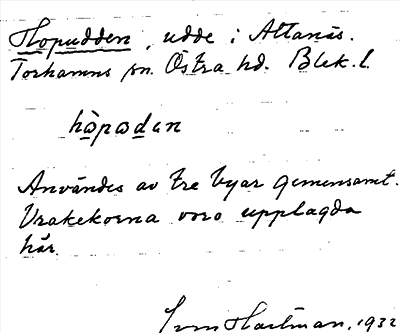 Hopudden, udde i Attanäs.
Torhamns sn. Östra hd. Blek. l.
hòpɷden
Användes av tre byar gemensamt.
Vrakekorna voro upplagda
här.
Hartman, 1932